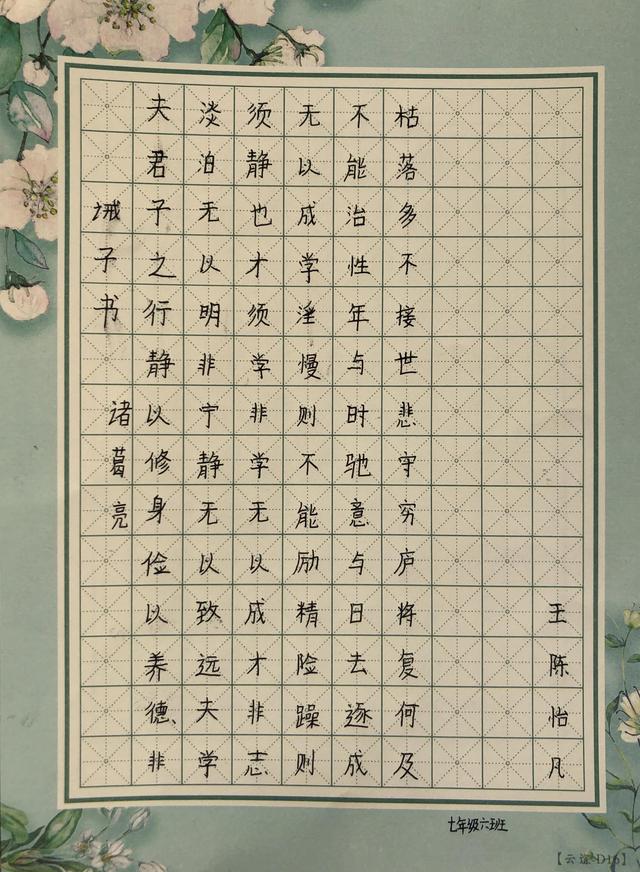 诫子书 诸葛亮
夫君子之行静以修身俭以养德、非
淡泊无以明非宁静无以致远夫学
须静也才须学非学无以成才非志
无以成学淫慢则不能励精险躁则
不能治性年与时驰意与日去逐成
枯落多不接世悲守穷庐将复何及
王陈怡凡
七年级六班